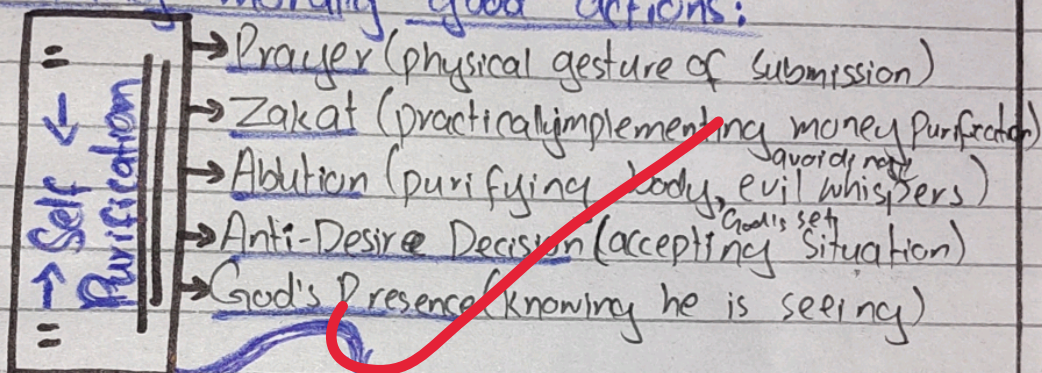 morally good actions:
→ Prayer (physical gesture of submission)
→ Zakat (practicaly implementing money purification)
→ Ablution (purifying body, avoiding evil whispers)
→ Anti-Desire Decision (accepting God's set situation)
→ God's Presence (knowing he is seeing)
= ← Self → =
Purification